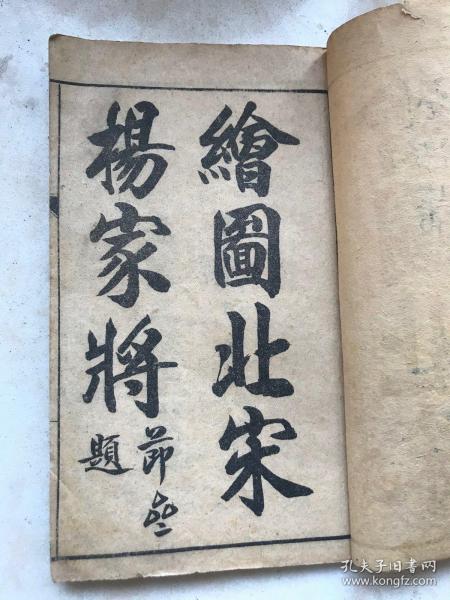 繪圖北宋
楊家將
節
題
孔夫子旧书网
www.kongfz.com